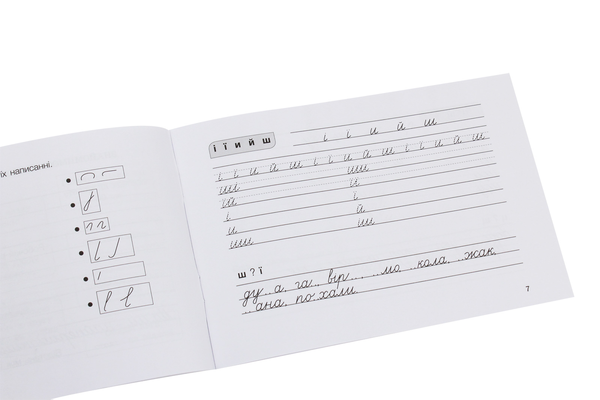 їх написанні.
і ї и й ш
і ї и й ш
і ї и й ш і ї и й ш і ї и й ш
ш ? ї
ду..а, га.., вір.., ..мо, ..кола, ..жак,
..ана, по..хали.
7